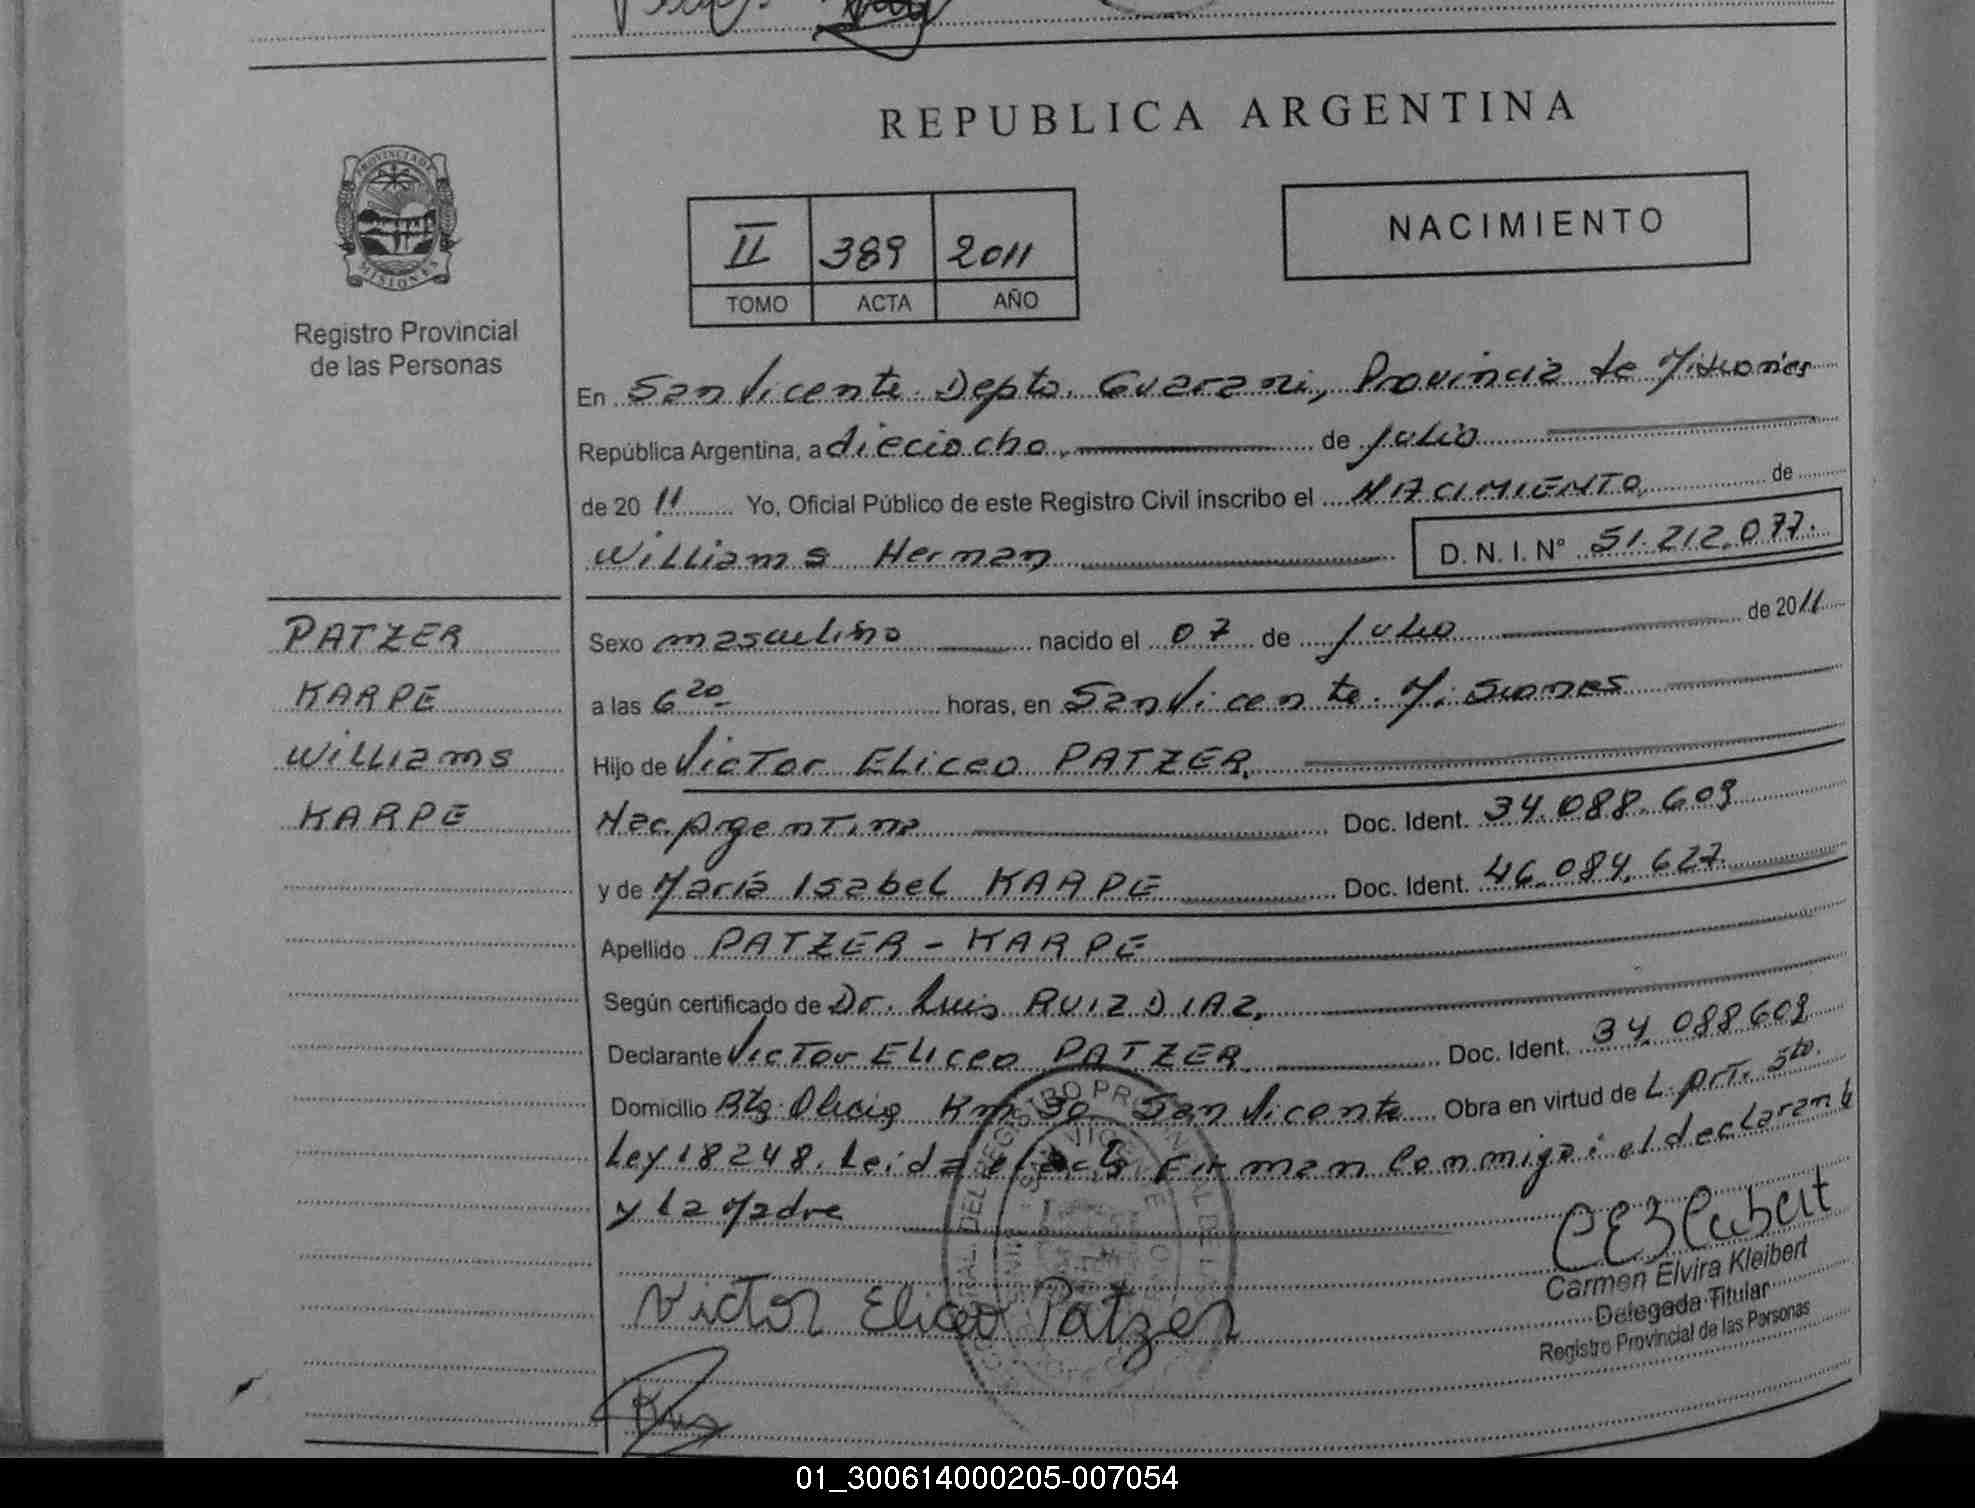 REPUBLICA ARGENTINA
PROVINCIA DE
MISIONES
Registro Provincial
de las Personas
II 389 2011
TOMO ACTA AÑO
NACIMIENTO
En San Vicente Depto. Guarani, Provincia de Misiones
República Argentina, a dieciocho, de Julio
de 20 11 Yo, Oficial Público de este Registro Civil inscribo el NACIMIENTO, de
Williams Hernan D. N. I. N° 51.212.077.
PATZER
KARPE
Williams
KARPE
Sexo masculino nacido el 07 de Julio de 2011
a las 6 20 horas, en San Vicente. Misiones
Hijo de Victor Eliceo PATZER,
Nac. Argentina Doc. Ident. 34.088.609
y de María Isabel KARPE Doc. Ident. 46.084.627
Apellido PATZER - KARPE
Según certificado de Dr. Luis RUIZ DIAZ,
Declarante Victor Eliceo PATZER Doc. Ident. 34.088609
Domicilio Km 30 San Vicente Obra en virtud de L. prT. 5to.
Ley 18248. Leida el acta Firman Conmigo: el declarante
y La Madre
Victor Eliceo Patzer
Carmen Elvira Kleibert
Delegada Titular
Registro Provincial de las Personas
01_300614000205-007054